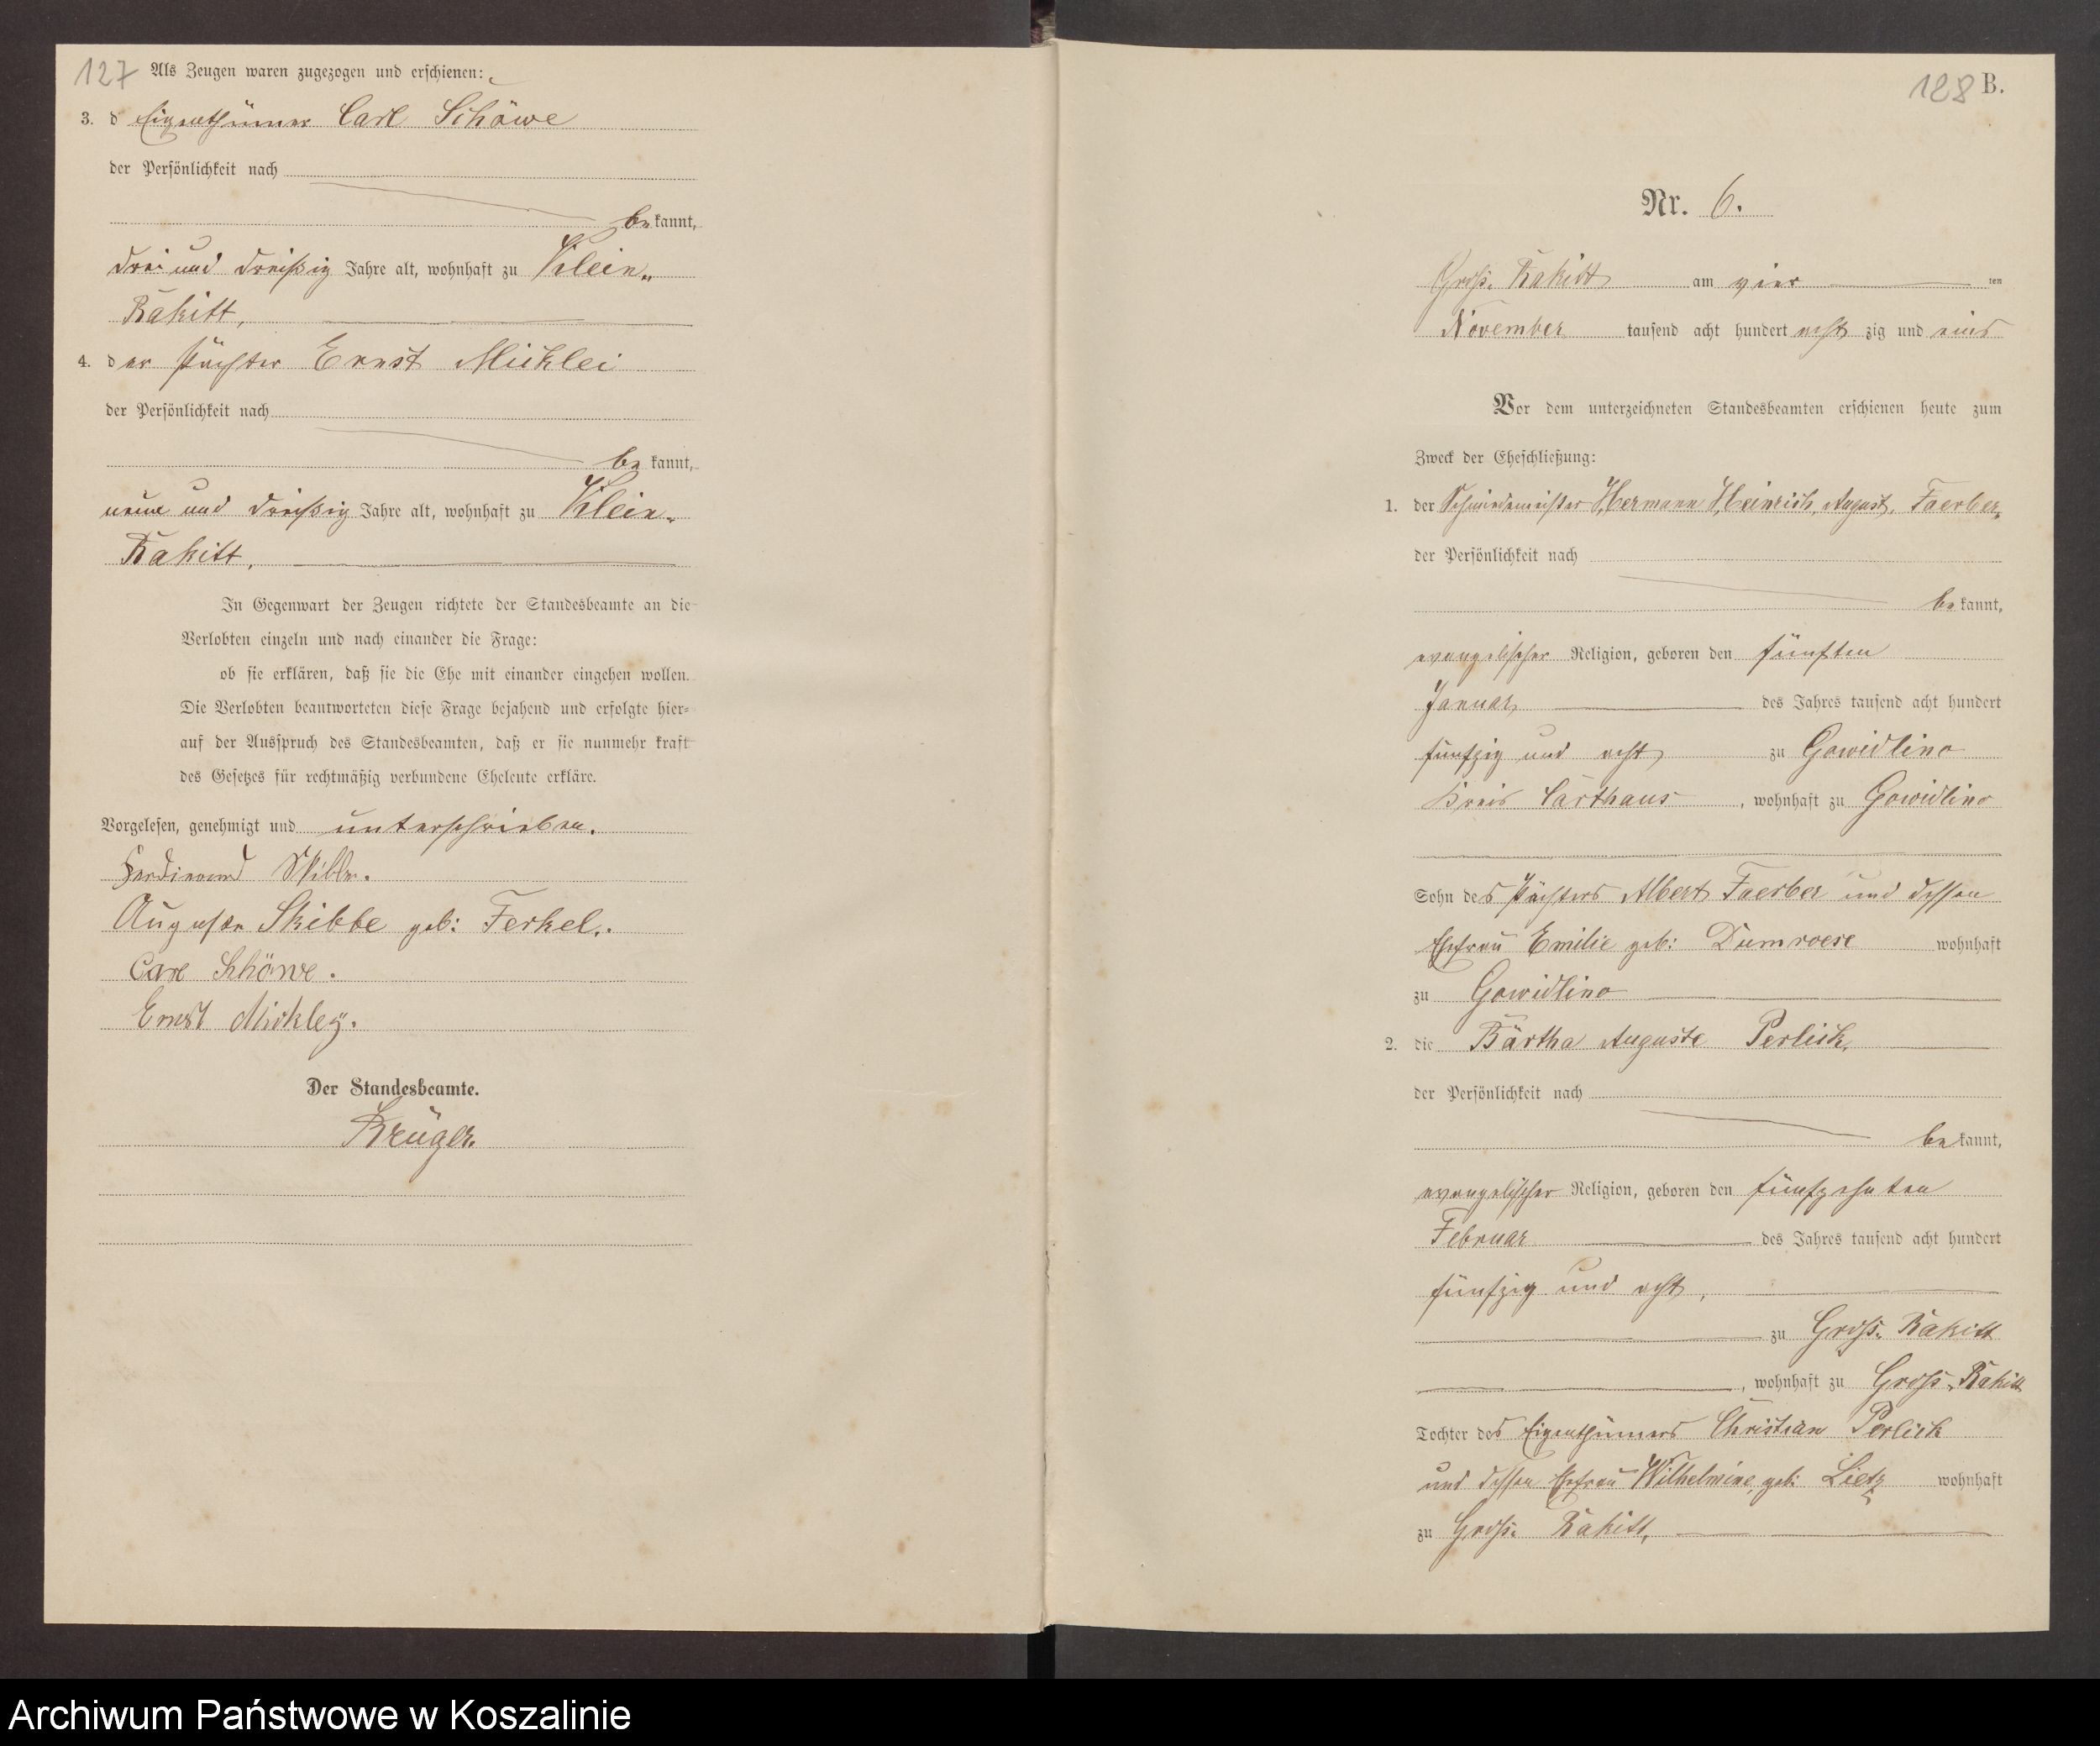 127 Als Zeugen waren zugezogen und erschienen:
3. d Eigenthümer Carl Schöwe
der Persönlichkeit nach
bekannt,
drei und dreißig Jahre alt, wohnhaft zu Klein-
Rakitt,
4. der Pächter Ernst Micklei
der Persönlichkeit nach
bekannt,
neun und dreißig Jahre alt, wohnhaft zu Klein-
Rakitt,
In Gegenwart der Zeugen richtete der Standesbeamte an die
Verlobten einzeln und nach einander die Frage:
ob sie erklären, daß sie die Ehe mit einander eingehen wollen.
Die Verlobten beantworteten diese Frage bejahend und erfolgte hier-
auf der Ausspruch des Standesbeamten, daß er sie nunmehr kraft
des Gesetzes für rechtmäßig verbundene Eheleute erkläre.
Vorgelesen, genehmigt und unterschrieben.
Ferdinand Skibbe.
Auguste Skibbe geb: Ferkel.
Carl Schöwe.
Ernst Mickley.
Der Standesbeamte.
Krüger.
128 B.
Nr. 6.
Groß-Rakitt am vier ten
November tausend acht hundert acht zig und eins
Vor dem unterzeichneten Standesbeamten erschienen heute zum
Zweck der Eheschließung:
1. der Schmiedemeister Hermann Heinrich August Faerber,
der Persönlichkeit nach
bekannt,
evangelischer Religion, geboren den fünften
Januar des Jahres tausend acht hundert
fünfzig und acht zu Gowidlino
Kreis Carthaus, wohnhaft zu Gowidlino
Sohn des Pächters Albert Faerber und dessen
Ehefrau Emilie geb: Dumroese wohnhaft
zu Gowidlino
2. die Bärtha Auguste Perlick,
der Persönlichkeit nach
bekannt,
evangelischer Religion, geboren den fünfzehnten
Februar des Jahres tausend acht hundert
fünfzig und acht,
zu Groß-Rakitt
, wohnhaft zu Groß-Rakitt
Tochter des Eigenthümers Christian Perlick
und dessen Ehefrau Wilhelmine geb: Lietz wohnhaft
zu Groß-Rakitt,
Archiwum Państwowe w Koszalinie